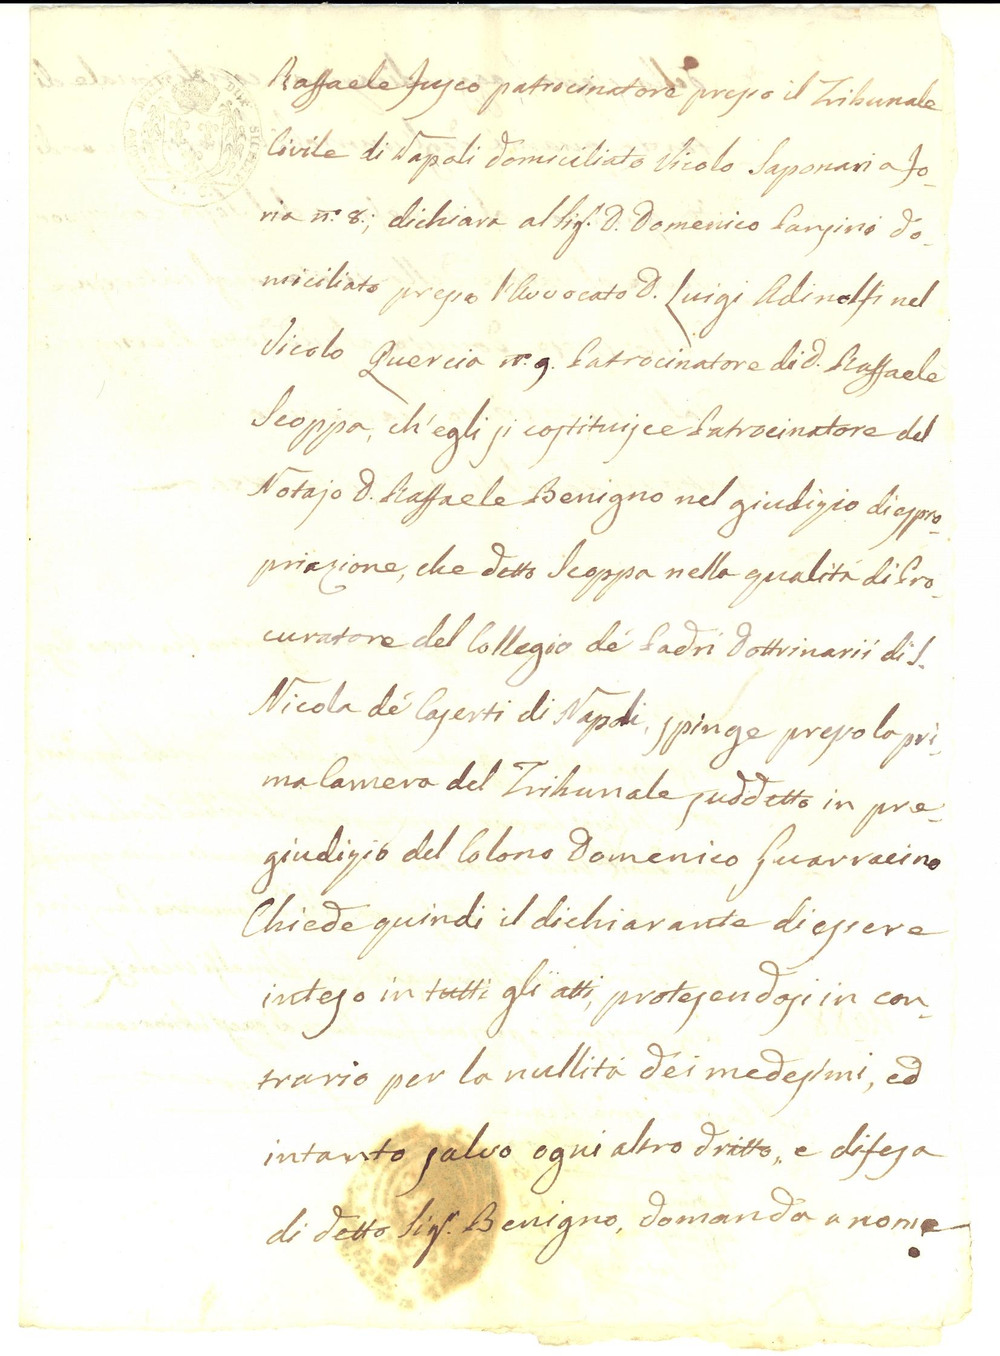 Raffaele Fusco patrocinatore presso il Tribunale
Civile di Napoli domiciliato Vicolo Saponari a Fo-
ria n.º 8.; dichiara al Sig.r D. Domenico Pansini do-
miciliato presso l'Avvocato D. Luigi Adinolfi nel
Vicolo Quercia n.º 9. Patrocinatore di D. Raffaele
Scoppa, ch'egli si costituisce Patrocinatore del
Notajo D. Raffaele Benigno nel giudizio di espro-
priazione, che detto Scoppa nella qualità di Pro-
curatore del Collegio de' Padri Dottrinarii di S.
Nicola de' Caserti di Napoli, spinge presso la pri-
ma Camera del Tribunale suddetto in pre-
giudizio del Colono Domenico Guarracino
Chiede quindi il dichiarante di essere
inteso in tutti gli atti, protesendosi in con-
trario per la nullità dei medesimi, ed
intanto salvo ogni altro dritto, e difesa
di detto Sig.r Benigno, domanda a nome